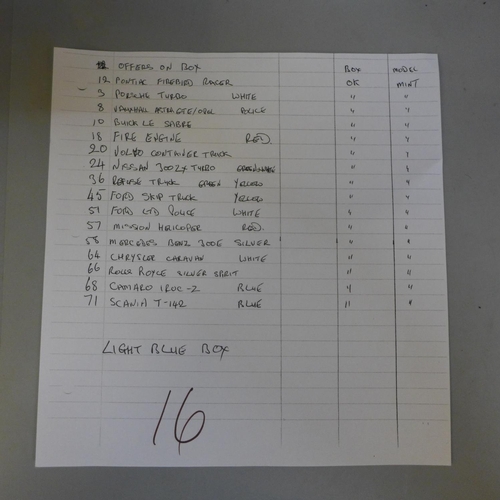 OFFERS ON BOX BOX MODEL
12 PONTIAC FIREBIRD RACER OK MINT
3 PORSCHE TURBO WHITE " "
8 VAUXHALL ASTRA GTE/OPEL POLICE " "
10 BUICK LE SABRE " "
18 FIRE ENGINE RED. " "
20 VOLVO CONTAINER TRUCK " "
24 NISSAN 300ZX TURBO " "
36 REFUSE TRUCK GREEN YELLOW " "
45 FORD SKIP TRUCK YELLOW " "
51 FORD LTD POLICE WHITE " "
57 MISSION HELICOPTER RED. " "
58 MERCEDES BENZ 300E SILVER " "
64 CHRYSLER CARAVAN WHITE " "
66 ROLLS ROYCE SILVER SPIRIT " "
68 CAMARO IROC-Z BLUE " "
71 SCANIA T-142 BLUE " "
LIGHT BLUE BOX
16